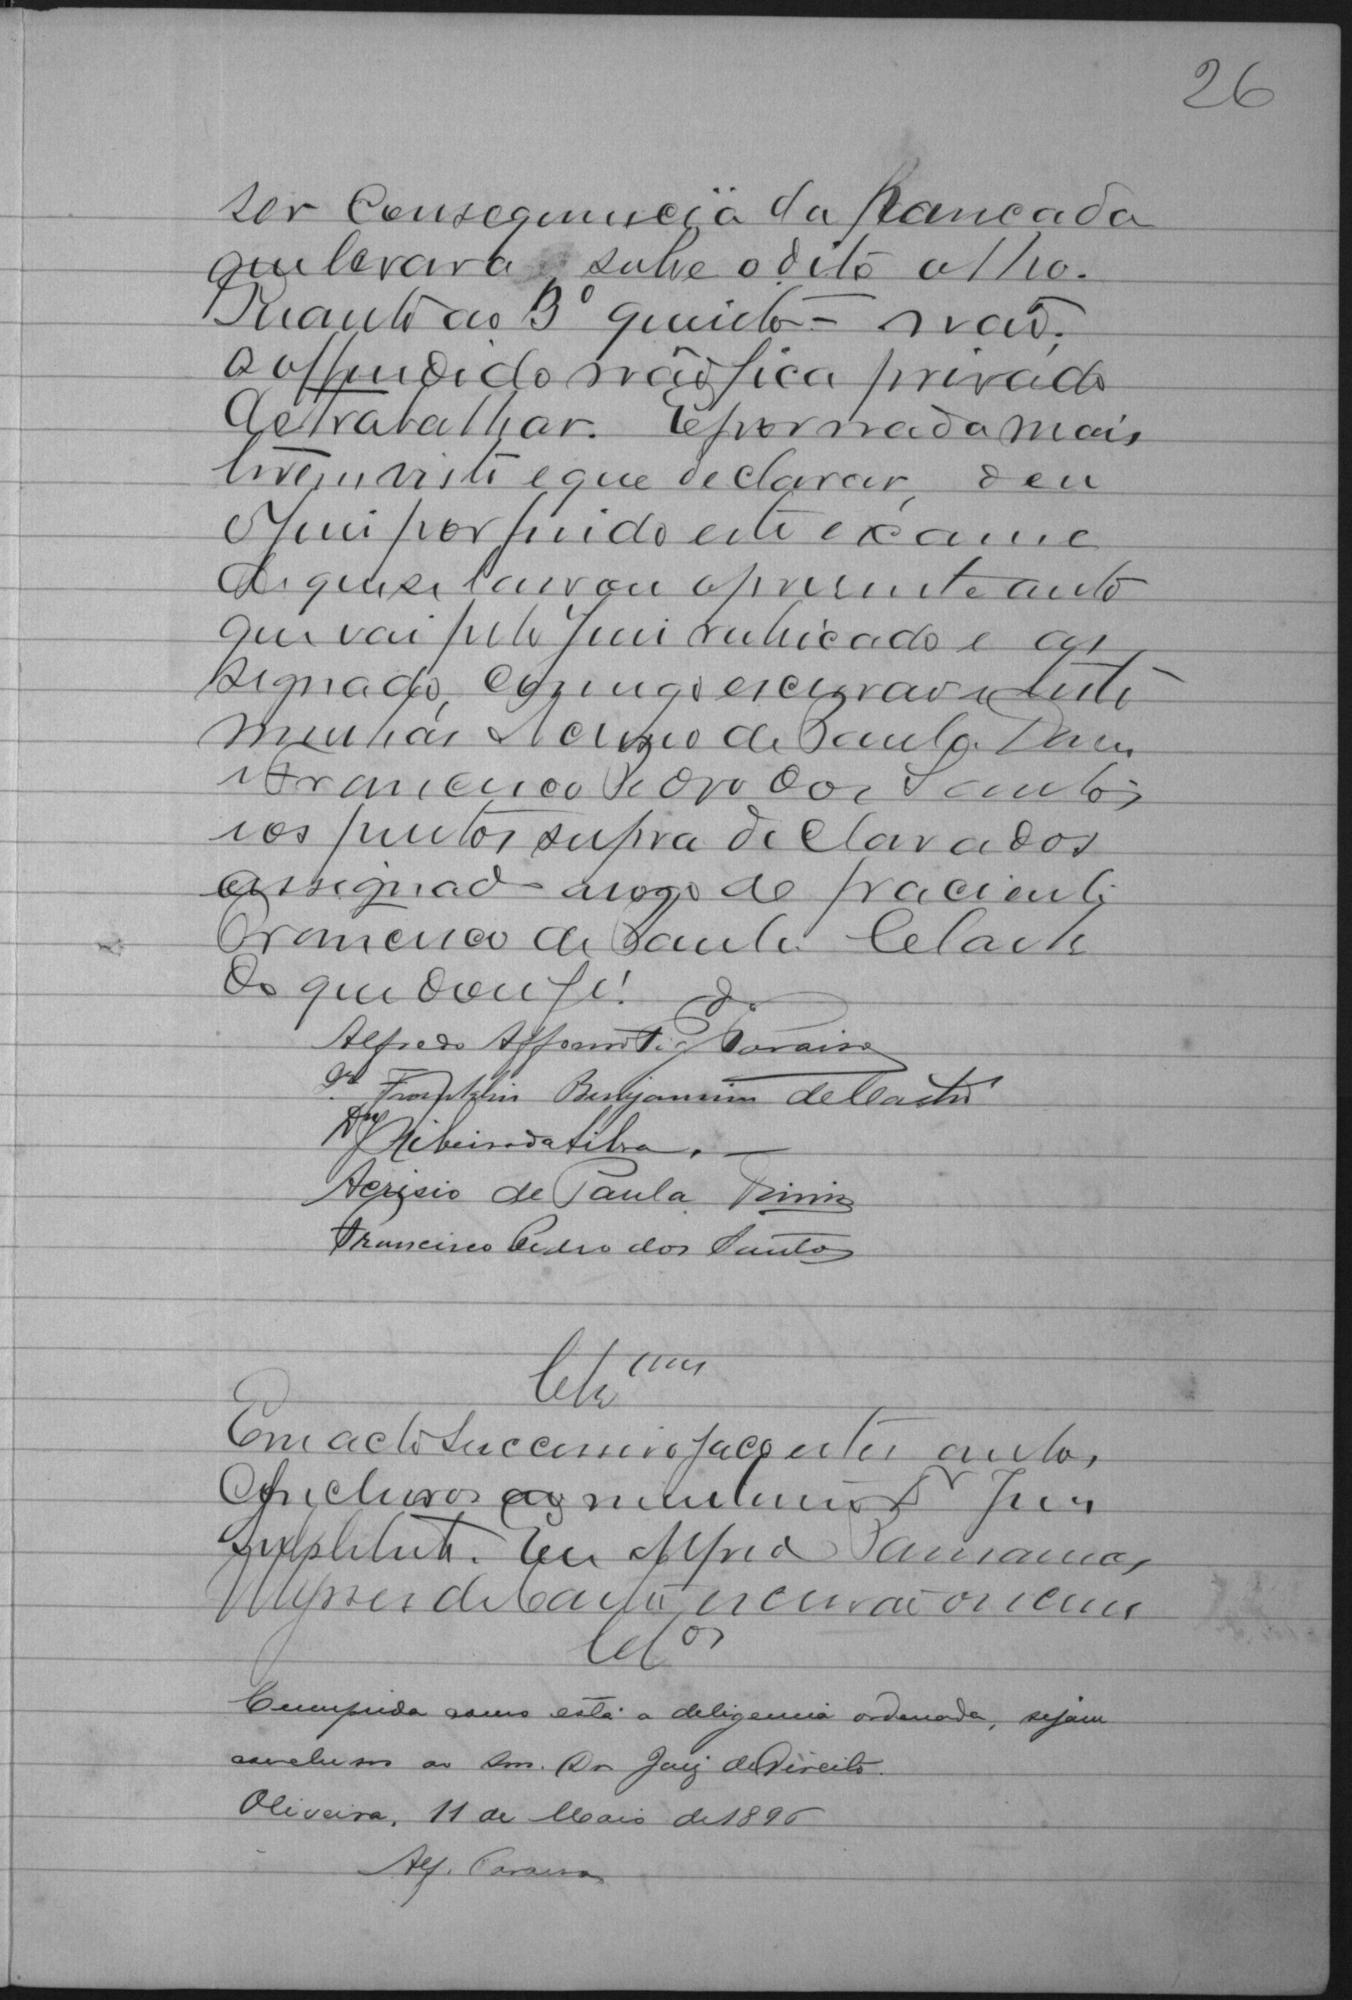 26
ser consequencia da pancada
que levara sobre o dito olho.
Quanto ao 3º quesito - não,
o offendido não fica privado
de trabalhar. E por nada mais
terem visto e que declarar, deu
o Juiz por findo este exame
de que se lavrou o presente auto
que vai pelo Juiz rubricado e as
signado, comigo escrivão e teste
munhas Acrisio de Paula Diniz
e Francisco Pedro dos Santos
e os peritos supra declarados
assignad a rogo de paciente
Francisco de Paula
do que dou fé.
Alfredo Affonso Paraiso
Dr. Franklin Benjamim de Castro
Ribeiro da Silva.
Acrisio de Paula Diniz
Francisco Pedro dos Santos
Em acto successivo faço estes autos
conclusos ao meritissimo Dr Juiz
substituto. Eu Alfredo
Ulysses de Castro escrivão o escrevi
Cls.os
Cumprida como está a deligencia ordenada, sejam
conclusos ao Snr. Dr Juiz de Direito.
Oliveira, 11 de Maio de 1896
Alf. Paraiso